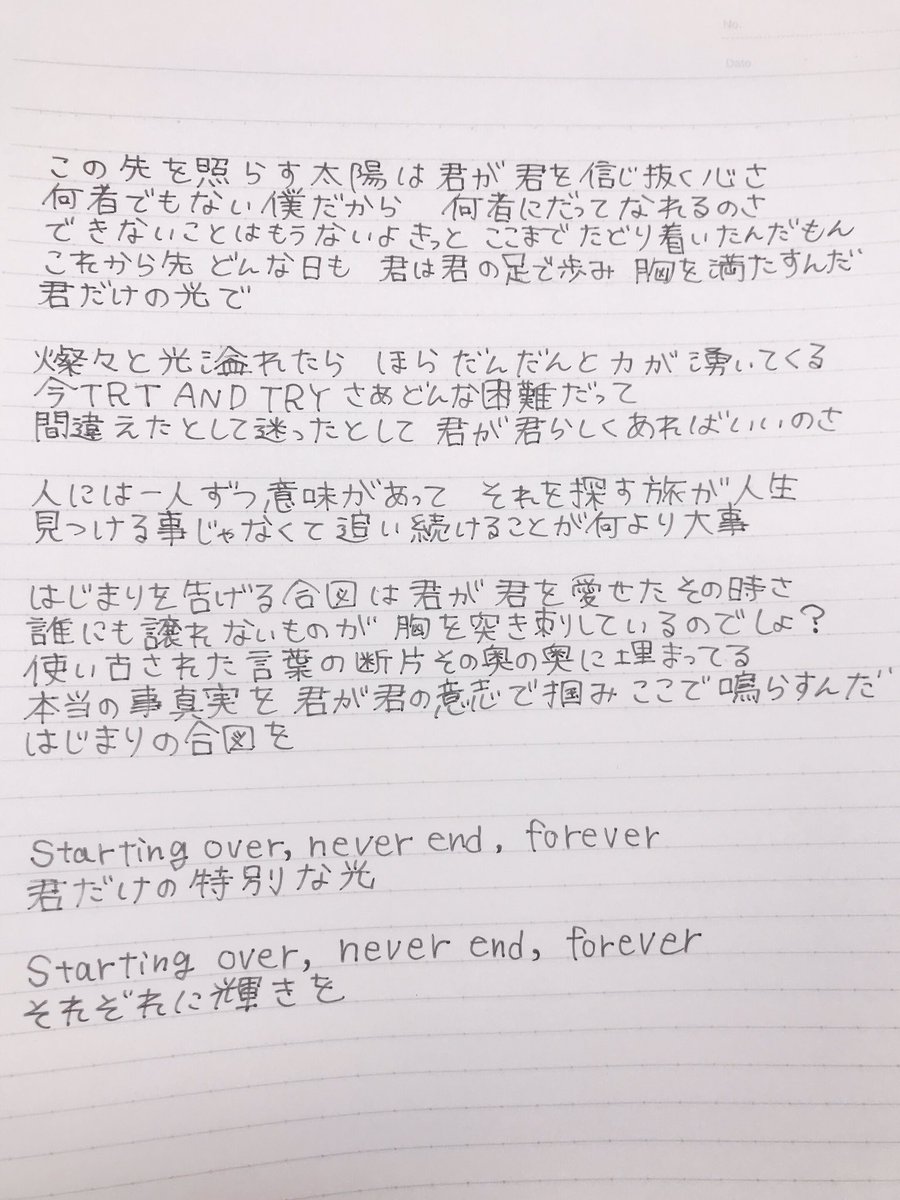 No.
Date
この先を照らす太陽は君が君を信じ抜く心さ
何者でもない僕だから 何者にだってなれるのさ
できないことはもうないよきっと ここまでたどり着いたんだもん
これから先 どんな日も 君は君の足で歩み 胸を満たすんだ
君だけの光で
燦々と光溢れたら ほら だんだんと力が湧いてくる
今TRT AND TRY さあどんな困難だって
間違えたとして迷ったとして 君が君らしくあればいいのさ
人には一人ずつ意味があって それを探す旅が人生
見つける事じゃなくて追い続けることが何より大事
はじまりを告げる合図は君が君を愛せたその時さ
誰にも譲れないものが 胸を突き刺しているのでしょ?
使い古された言葉の断片その奥の奥に埋まってる
本当の事真実を 君が君の意志で掴み ここで鳴らすんだ
はじまりの合図を
Starting over, never end, forever
君だけの特別な光
Starting over, never end, forever
それぞれに輝きを